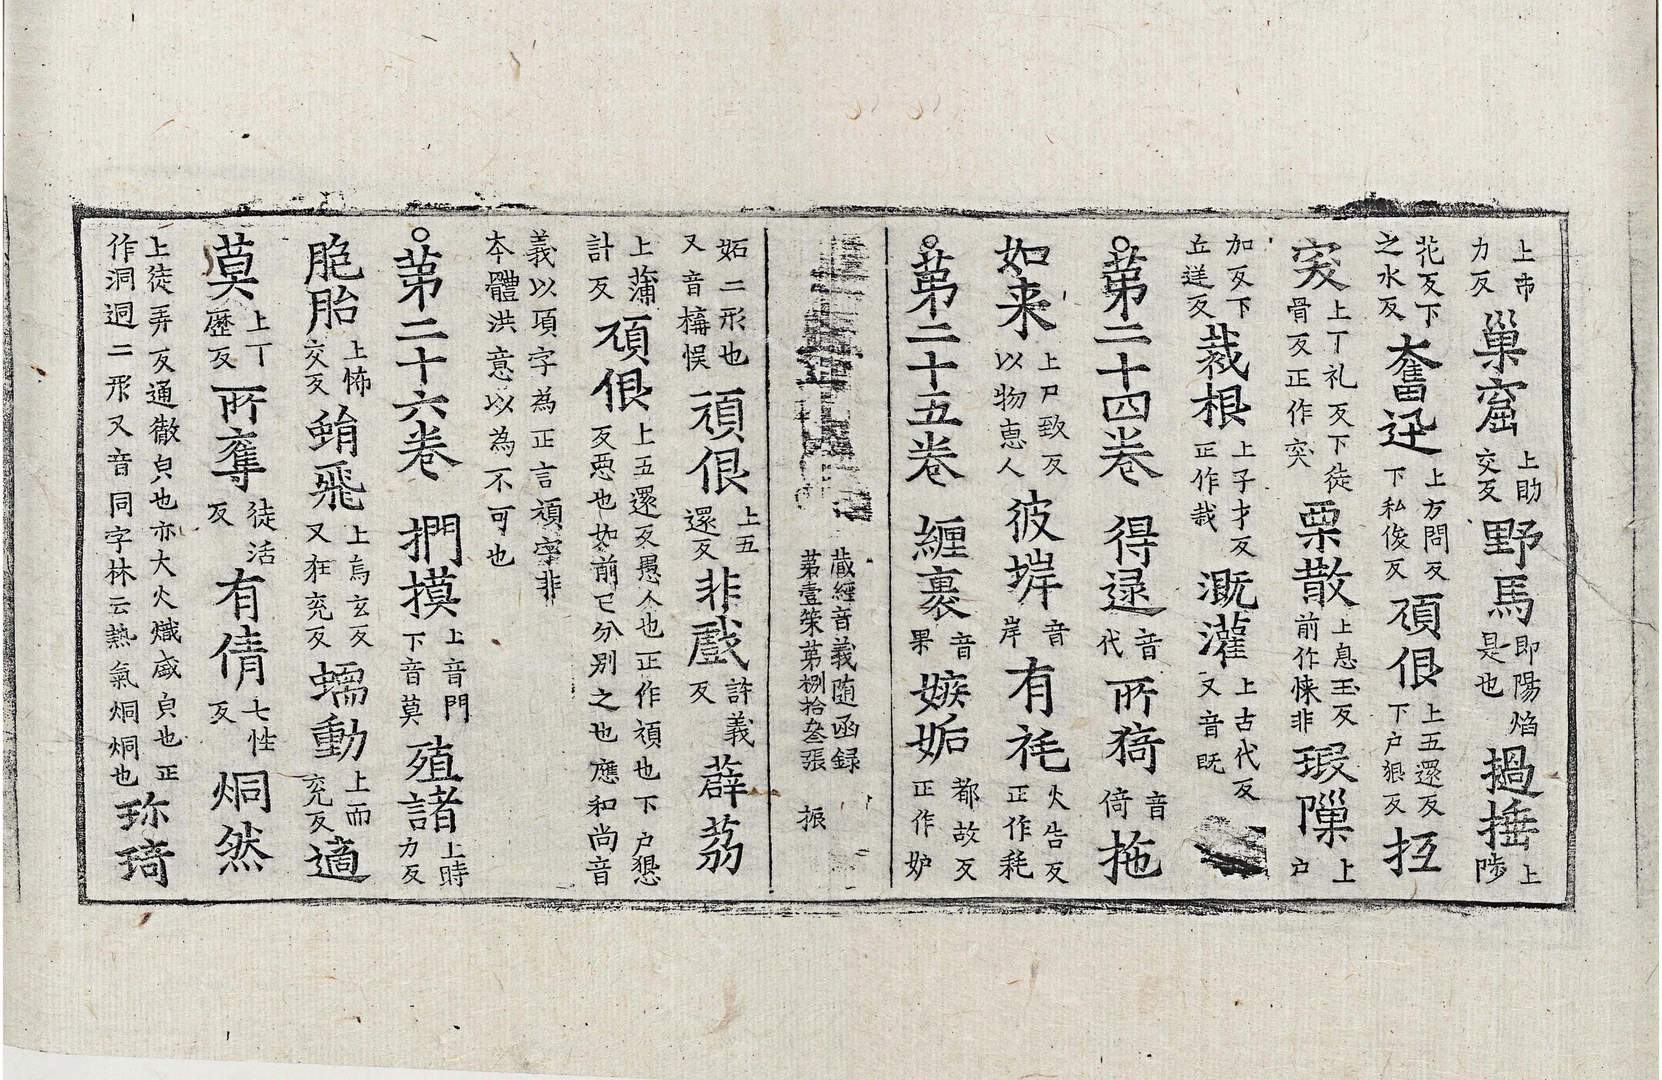 上市力反巢窟上助交反野馬即陽焰是也過捶上陟
花反下之水反奮迅上方問反下私俊反頑佷上五還反下戶狠反抂
突上丁礼反下徒骨反正作突栗散上息玉反前作悚非瑕隟上戶
加反下丘逆反栽根上子才反正作栽溉灌上古代反又音旣
○苐二十四卷 得逯音代所猗音倚拖
如来上尸致反以物恵人彼墷音岸有秏火告反正作耗
○苐二十五卷 纏裹音果嫉妬都故反正作妒
蔵經音義随函録苐壹筞苐捌拾叄張 振
妬二形也又音構悮頑佷上五還反非戲許義反薜荔
上蒲計反頑佷上五還反愚人也正作頑也下戶懇反悪也如前已分别之也應和尚音
義以項字為正言頑字非夲體洪意以為不可也
○苐二十六卷 捫摸上音門下音莫殖諸上時力反
脃胎上怖交反蜎飛上烏玄反又狂兖反蠕動上而兖反適
莫上丁歷反所奪徒活反有倩七性反烔然
上徒弄反通徹皃也亦大火熾盛皃也正作洞迵二形又音同字林云熱氣烔烔也珎琦